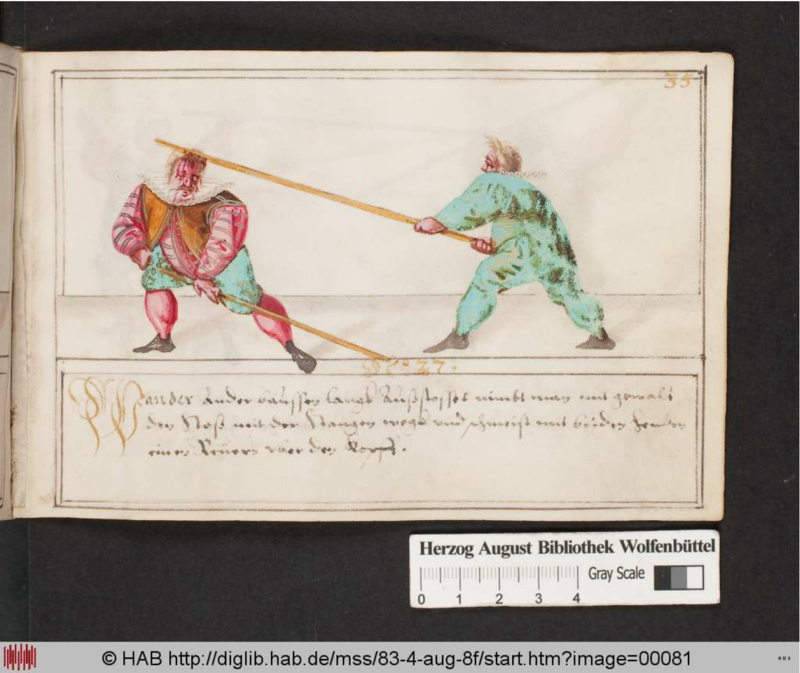 35
No. 27.
Wander ander baussen langk Außstosses nimbt man mit gewalt
den Stoß mit der Stangen wegk und schmeist mit beiden henden
einen Reuers vber den Kopff.
Herzog August Bibliothek Wolfenbüttel
Gray Scale
0 1 2 3 4
© HAB http://diglib.hab.de/mss/83-4-aug-8f/start.htm?image=00081